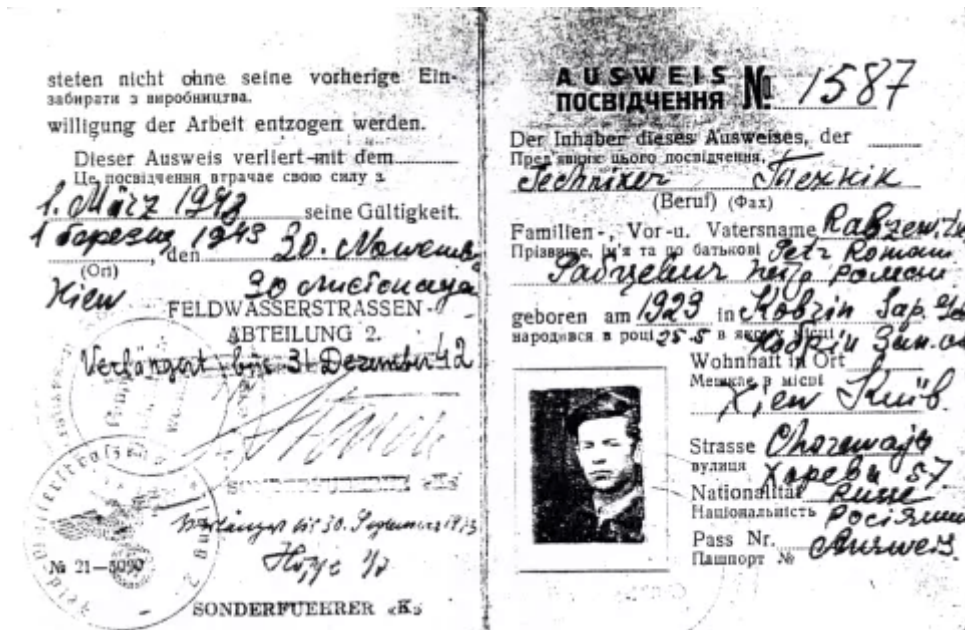 steten nicht ohne seine vorherige Ein-
забирати з виробництва.
willigung der Arbeit entzogen werden.
Dieser Ausweis verliert mit dem
Це посвідчення втрачає свою силу з
1. März 1943 seine Gültigkeit.
1 березня 1943, den 30. Novemb
(Ort)
Kiew 30 листопада
FELDWASSERSTRASSEN-
ABTEILUNG 2.
Verlängert bis 31 Dezember 42
Verlängert bis 30. September 1943
№ 21—5090
SONDERFUEHRER «K»
AUSWEIS № 1587
ПОСВІДЧЕННЯ
Der Inhaber dieses Ausweises, der
Пред'явник цього посвідчення,
Techniker Технік
(Beruf) (Фах)
Familien-, Vor-u. Vatersname
Прізвище, ім'я та по батькові Petr Roman
Рабцевич Петр Роман
geboren am 1923 in Kobrin Sap.
народився в році 25.5 в Кобрін Зап.
Wohnhaft in Ort
Мешкає в місці
Kiew Київ.
Strasse
вулиця 57.
Nationalität Russe
Національність
Pass Nr. Ausweis.
Пашпорт №